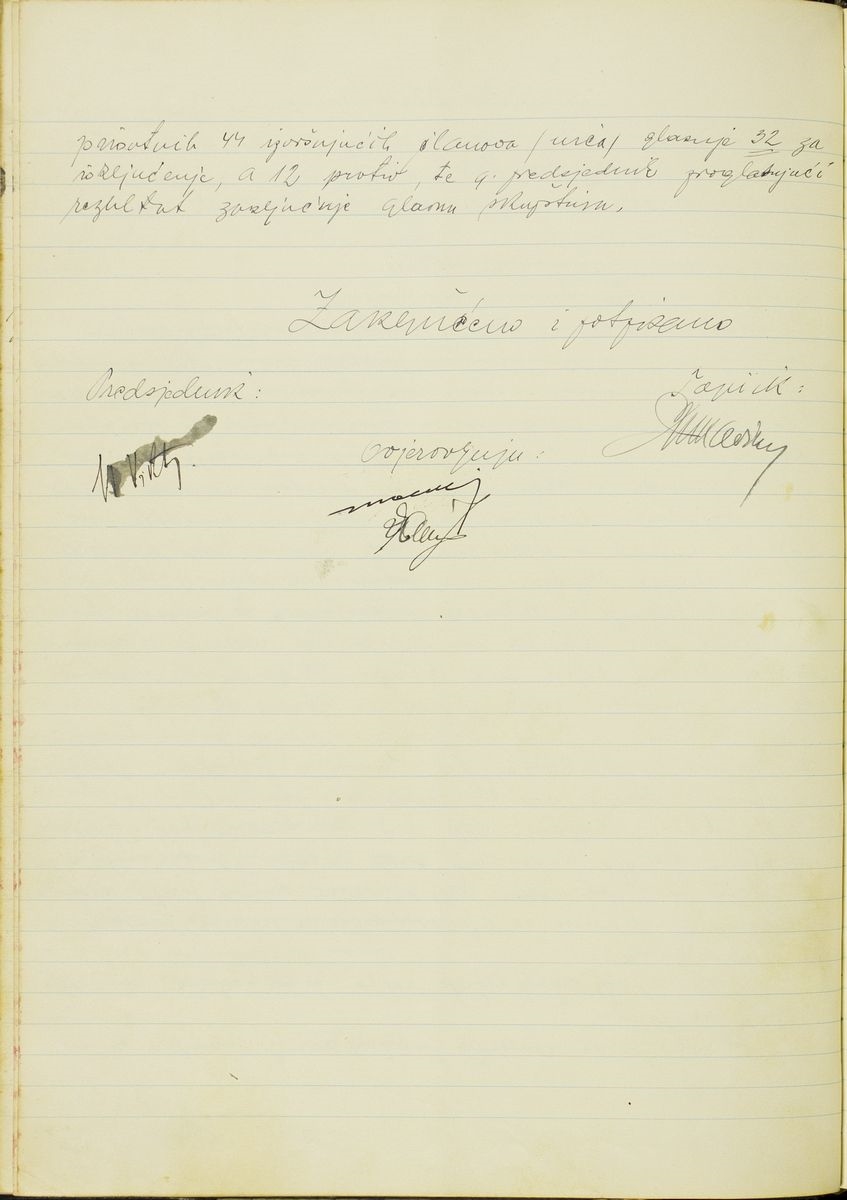 prisotnih 44 izvršujućih članova (urča) glasuje 32 za
isključenje, a 12 protiv, te g. predsjednik proglasujući
rezultat zaključuje glavnu skupštinu.
Zaključeno i potpisano
Predsjednik:
Zapisnik:
ovjerovljuju: